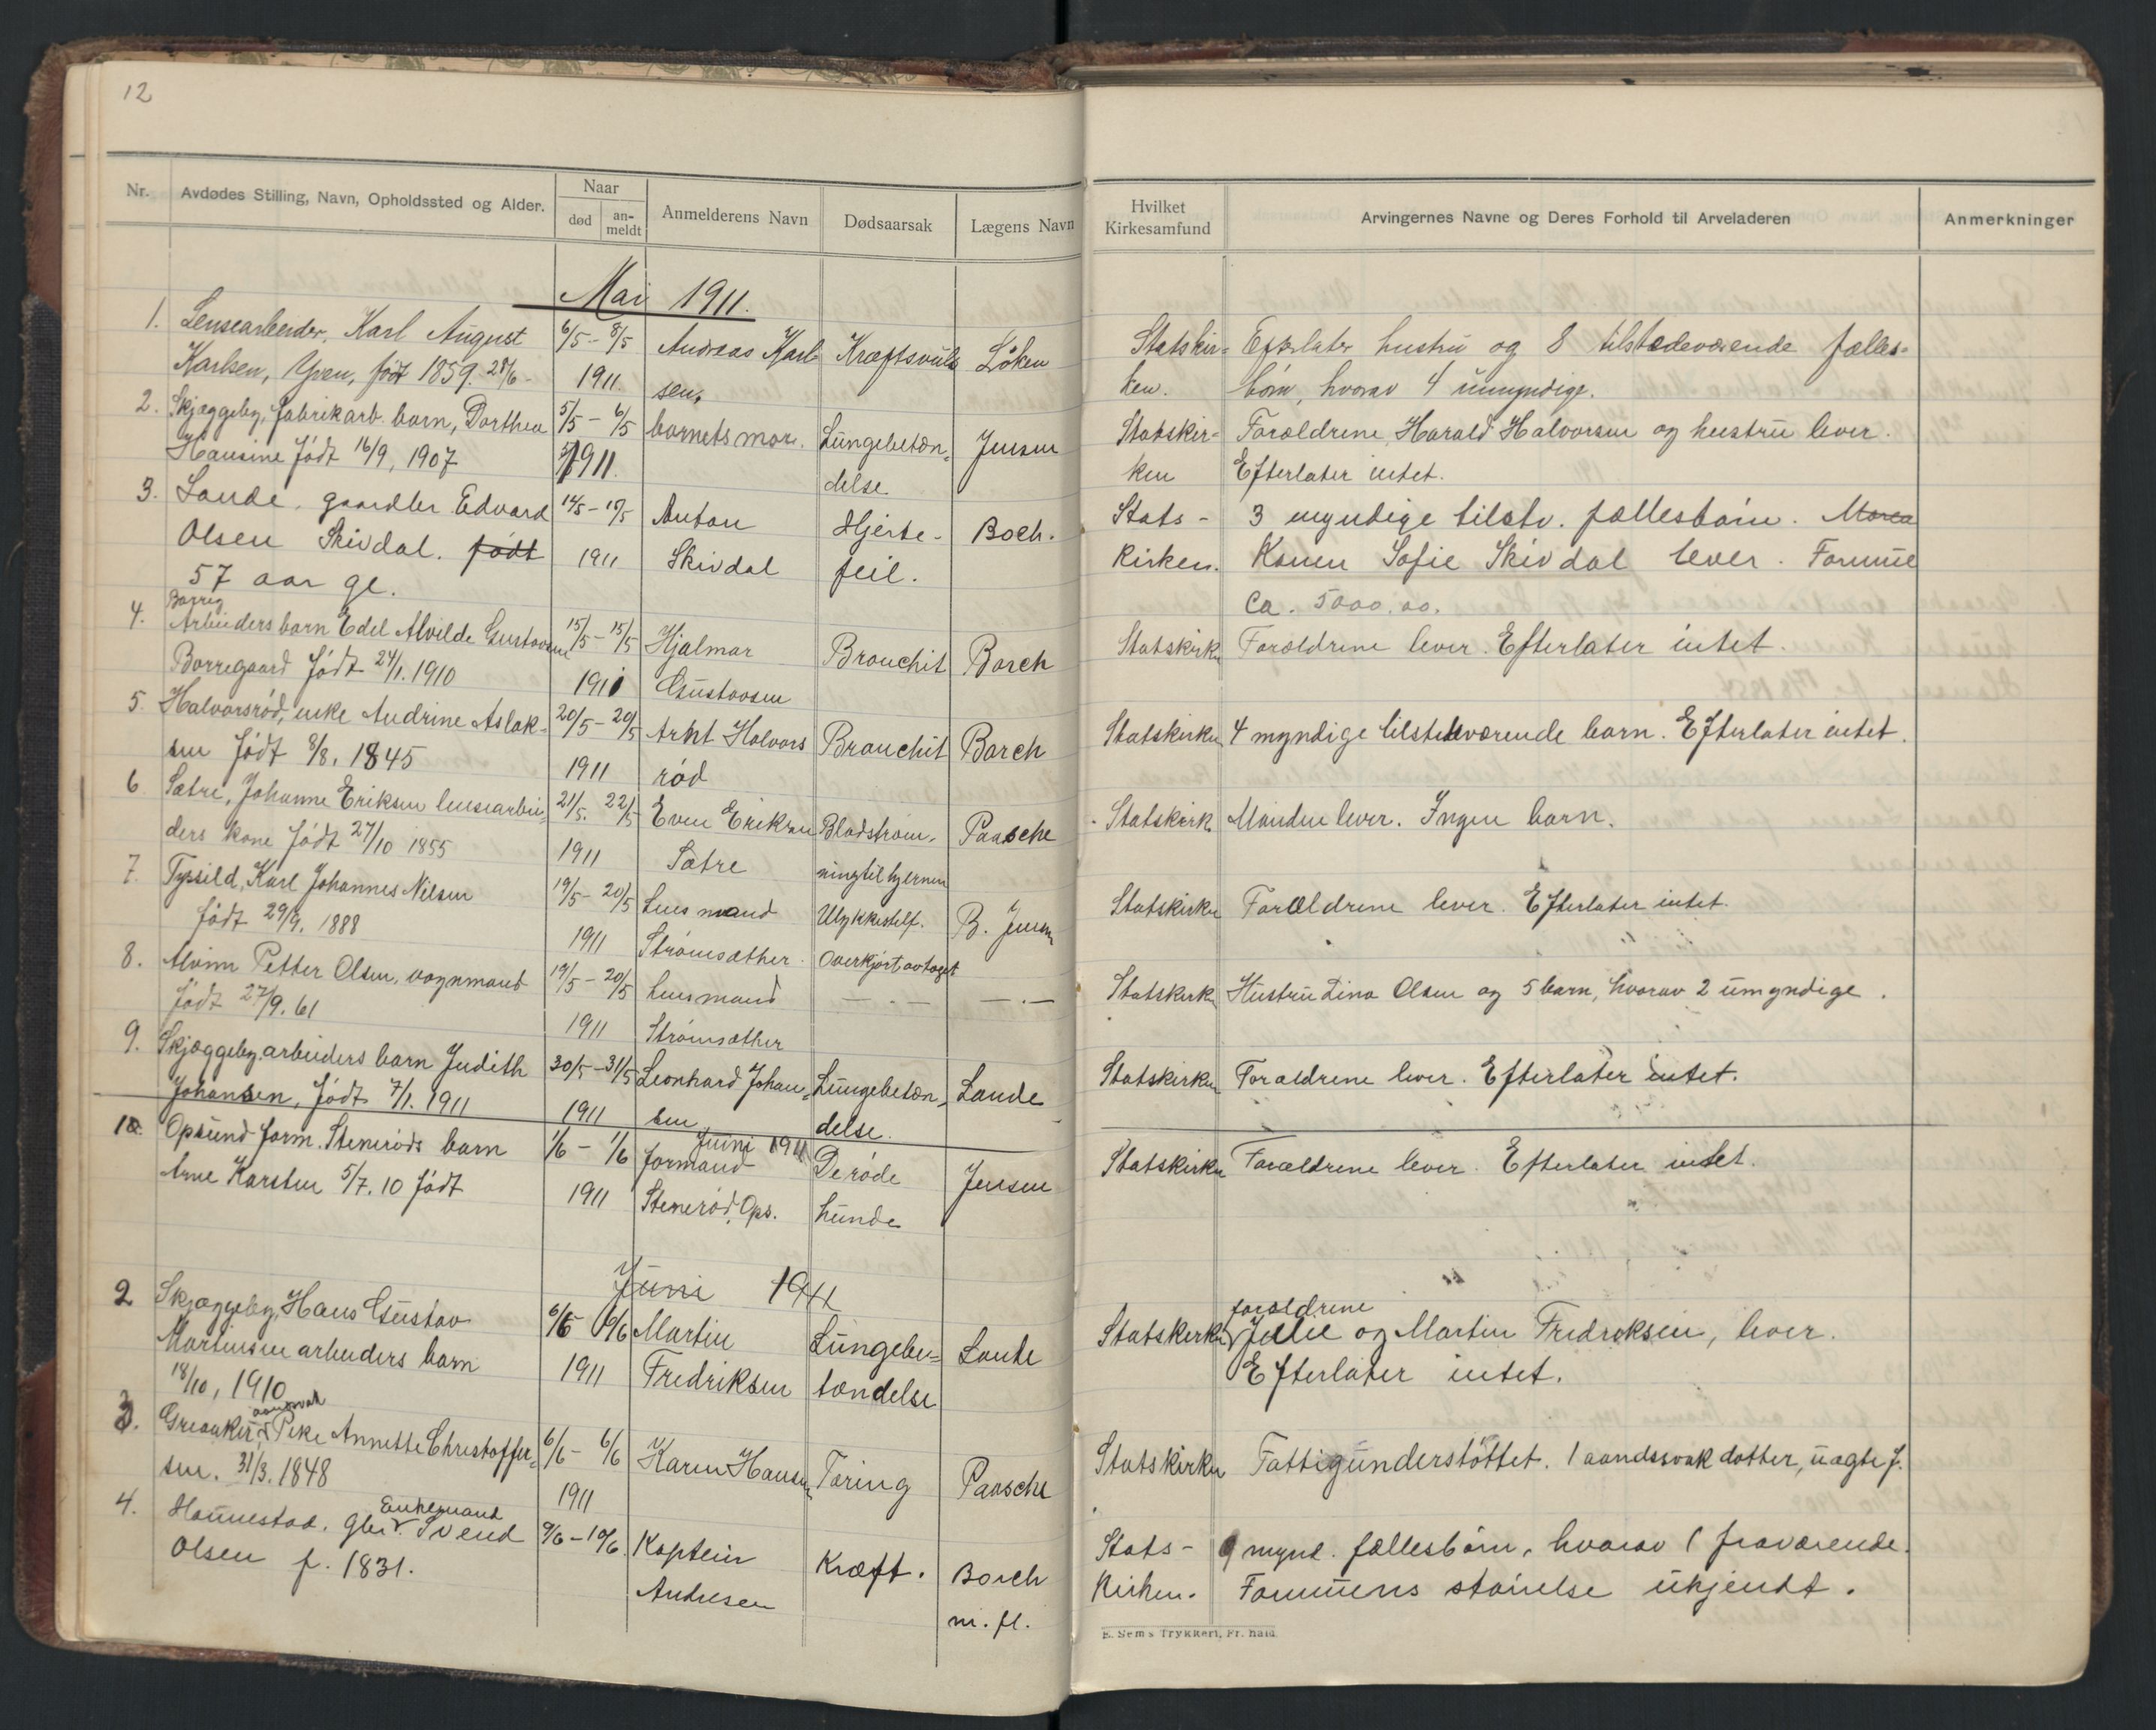 12
Nr.
Avdødes Stilling, Navn, Opholdssted og Alder.
Naar
død
an-
meldt
Anmelderens Navn
Dødsaarsak
Lægens Navn
Hvilket
Kirkesamfund
Arvingernes Navne og Deres Forhold til Arveladeren
Anmerkninger
Mai 1911.
1. Lensearbeider, Karl August 6/5 - 8/5 Andreas Karl Kræftsvulst Löken Statskir= Efterlater hustru og 8 tilstedeværende fælles=
Karlsen, Yven, født 1859. 28/6 - 1911. sen, ken. børn, hvorav 4 umyndige.
2. Skjæggeby, fabrikarb. barn, Dorthea 5/5 - 6/5 barnets mor. Lungebetæn= Jensen Statskir= Forældrene Harald Halvorsen og hustru lever.
Hansine født 16/9, 1907 1911. delse ken Efterlater intet.
3. Lande, gaardbr Edvard 14/5 - 15/5 Anton Hjerte- Boch. Stats - 3 myndige tilstv. fællesbørn. Moren
Olsen Skivdal. født 1911 Skivdal feil. Kirken. Konen Sofie Skivdal lever. Formue
57 aar gl. Ca. 5000.00.
Borreg
4. Arbeiders barn Edel Alvilde Gustavsen 15/5 - 15/5 Hjalmar Bronchit Borch Statskirken Forældrene lever. Efterlater intet.
Borregaard født 24/1. 1910 1911 Gustavsen
5. Halvorsrød, enke Andrine Aslak- 20/5 - 20/5 Arnt Halvors Bronchit Borch Statskirken 4 myndige tilstedeværende barn. Efterlater intet.
sen født 8/8. 1845 1911 rød
6 Sætre, Johanne Eriksen lensearbei= 21/5. 22/5 Even Eriksen Blodstrøm- Paasche Statskirk. Manden lever. Ingen barn.
ders kone født 27/10 1855 1911 Sætre ning til hjernen
7. Karl Johannes Nilsen 19/5 - 20/5 Lensmand Ulykkestilf. B. Jensen Statskirken Forældrene lever. Efterlater intet.
født 29/9. 1888 1911 Strømsæther. Overkjørt av toget
8. Alvin Petter Olsen, vognmand 19/5 - 20/5 Lensmand — . — — . — Statskirken Hustru Lina Olsen og 5 barn, hvorav 2 umyndige.
født 27/9. 61 1911 Strømsæther
9. Skjæggeby, arbeiders barn Judith 30/5 - 31/5 Leonhard Johan= Lungebetæn= Lande Statskirken Forældrene lever. Efterlater intet.
Johansen, født 7/1. 1911 1911 sen delse.
Juni 1911
10. Opsund form. Stenerøds barn 1/6 - 1/6 formand De røde Jensen Statskirken Forældrene lever. Efterlater intet.
Arne Karsten 5/7. 10 født 1911 Stenerød, Ops. hunde
Juni 1911
forældrene
2 Skjæggeby, Hans Gustav 6/6 Martin Lungebe= Lande Statskirken Julie og Martin Fredriksen, lever.
Martinsen arbeiders barn 1911 Fredriksen tændelse Efterlater intet.
18/10, 1910
aandsvak
3. Greaaker, Pike Annette Christoffer= 6/6 - 6/6 Karen Hansen Tæring Paasche Statskirken Fattigunderstøttet. 1 aandssvak dotter, uægte f.
sen. 31/3. 1848 1911
Enkemand
4. Hannestad. gbr. Svend 9/6 - 10/6. Kaptein Kræft. Borch Stats - 9 mynd. fællesbörn, hvorav 1 fraværende.
Olsen f. 1831. Andresen m. fl. Kirken. Formuens størelse ukjendt.
E. Sem's Trykkeri, Fr. hald.